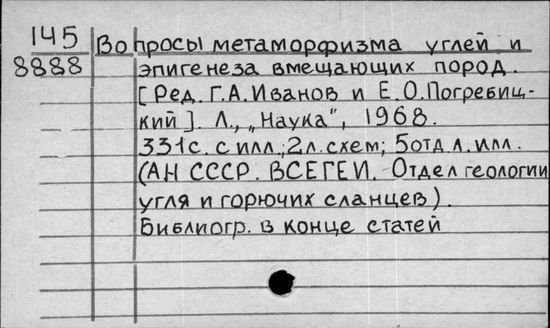 145 Вопросы метаморфизма углей и
8888 эпигенеза вмещающих пород.
[Ред. Г.А.Иванов и Е.О.Погребиц-
кий]. Л., „Наука", 1968.
331с. с илл.; 2л. схем; 5отд.л.илл.
(АН СССР. ВСЕГЕИ. Отдел геологии
угля и горючих сланцев).
Библиогр. в конце статей